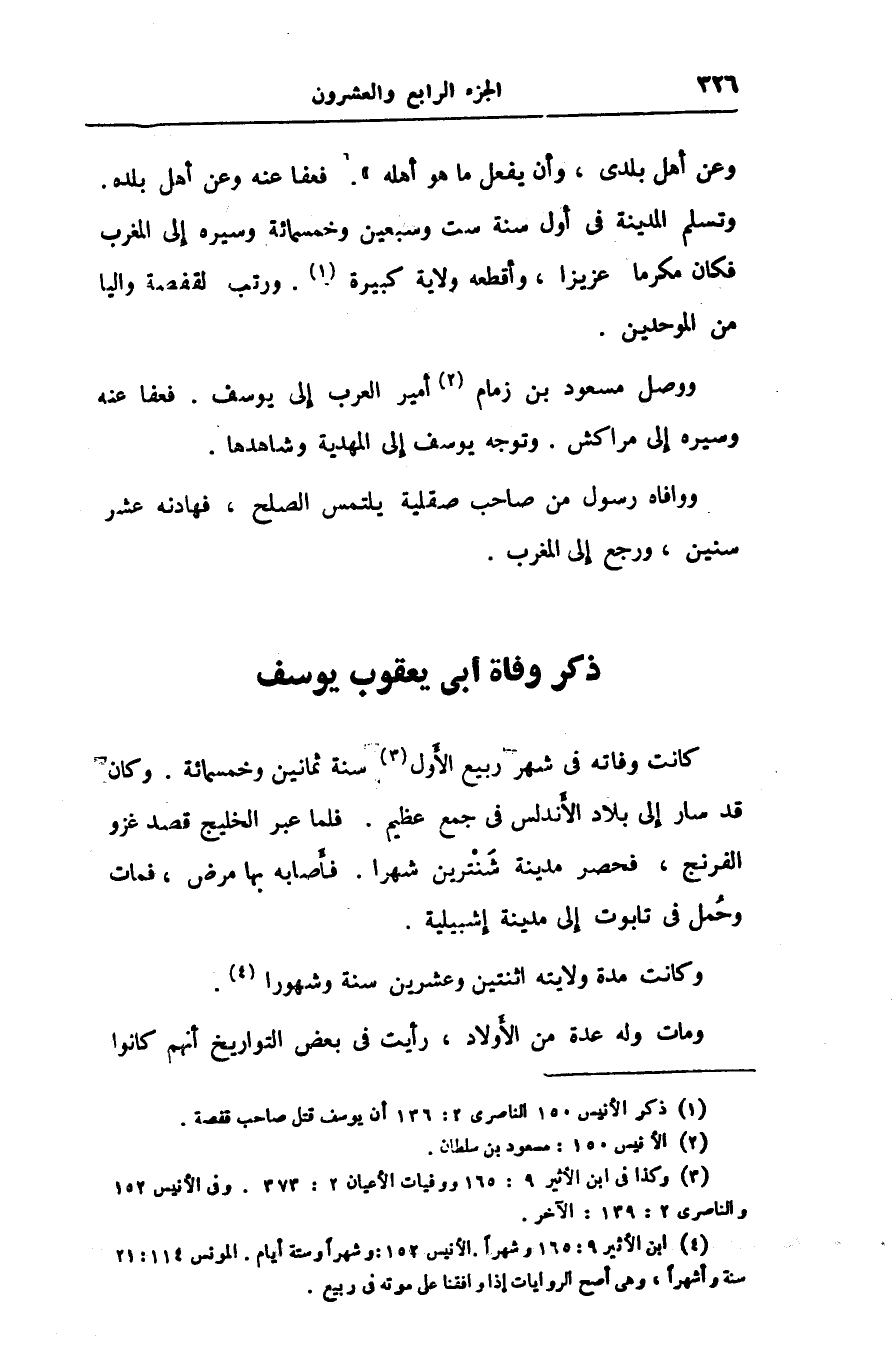 ٣٢٦
الجزء الرابع والعشرون
وعن أهل بلدى ، وأن يفعل ما هو أهله » . فعفا عنه وعن أهل بلده .
وتسلم المدينة فى أول سنة ست وسبعين وخمسمائة وسيره إلى المغرب
فكان مكرما عزيزا ، وأقطعه ولاية كبيرة (١) . ورتب لقفصة واليا
من الموحدين .
ووصل مسعود بن زمام (٢) أمير العرب إلى يوسف . فعفا عنه
وسيره إلى مراكش . وتوجه يوسف إلى المهدية وشاهدها .
ووافاه رسول من صاحب صقلية يلتمس الصلح ، فهادنه عشر
سنين ، ورجع إلى المغرب .
ذكر وفاة أبى يعقوب يوسف
كانت وفاته فى شهر ربيع الأَول (٣) سنة ثمانين وخمسمائة . وكان
قد سار إلى بلاد الأَندلس فى جمع عظيم . فلما عبر الخليج قصد غزو
الفرنج ، فحصر مدينة شَنْترين شهرا . فأَصابه بها مرض ، فمات
وحُمل فى تابوت إلى مدينة إشبيلية .
وكانت مدة ولايته اثنتين وعشرين سنة وشهورا (٤) .
ومات وله عدة من الأَولاد ، رأيت فى بعض التواريخ أنهم كانوا
(١) ذكر الأنيس ١٥٠ الناصرى ٢ : ١٣٦ أن يوسف قتل صاحب قفصة .
(٢) الأنيس ١٥٠ : مسعود بن سلطان .
(٣) وكذا فى ابن الأثير ٩ : ١٦٥ ووفيات الأعيان ٢ : ٣٧٣ . وفى الأنيس ١٥٢
والناصرى ٢ : ١٣٩ : الآخر .
(٤) ابن الأثير ٩ : ١٦٥ وشهراً . الأنيس ١٥٢ : وشهراً وستة أيام . المونس ١١٤ : ٢١
سنة وأشهراً ، وهى أصح الروايات إذا وافقنا على موته فى ربيع .